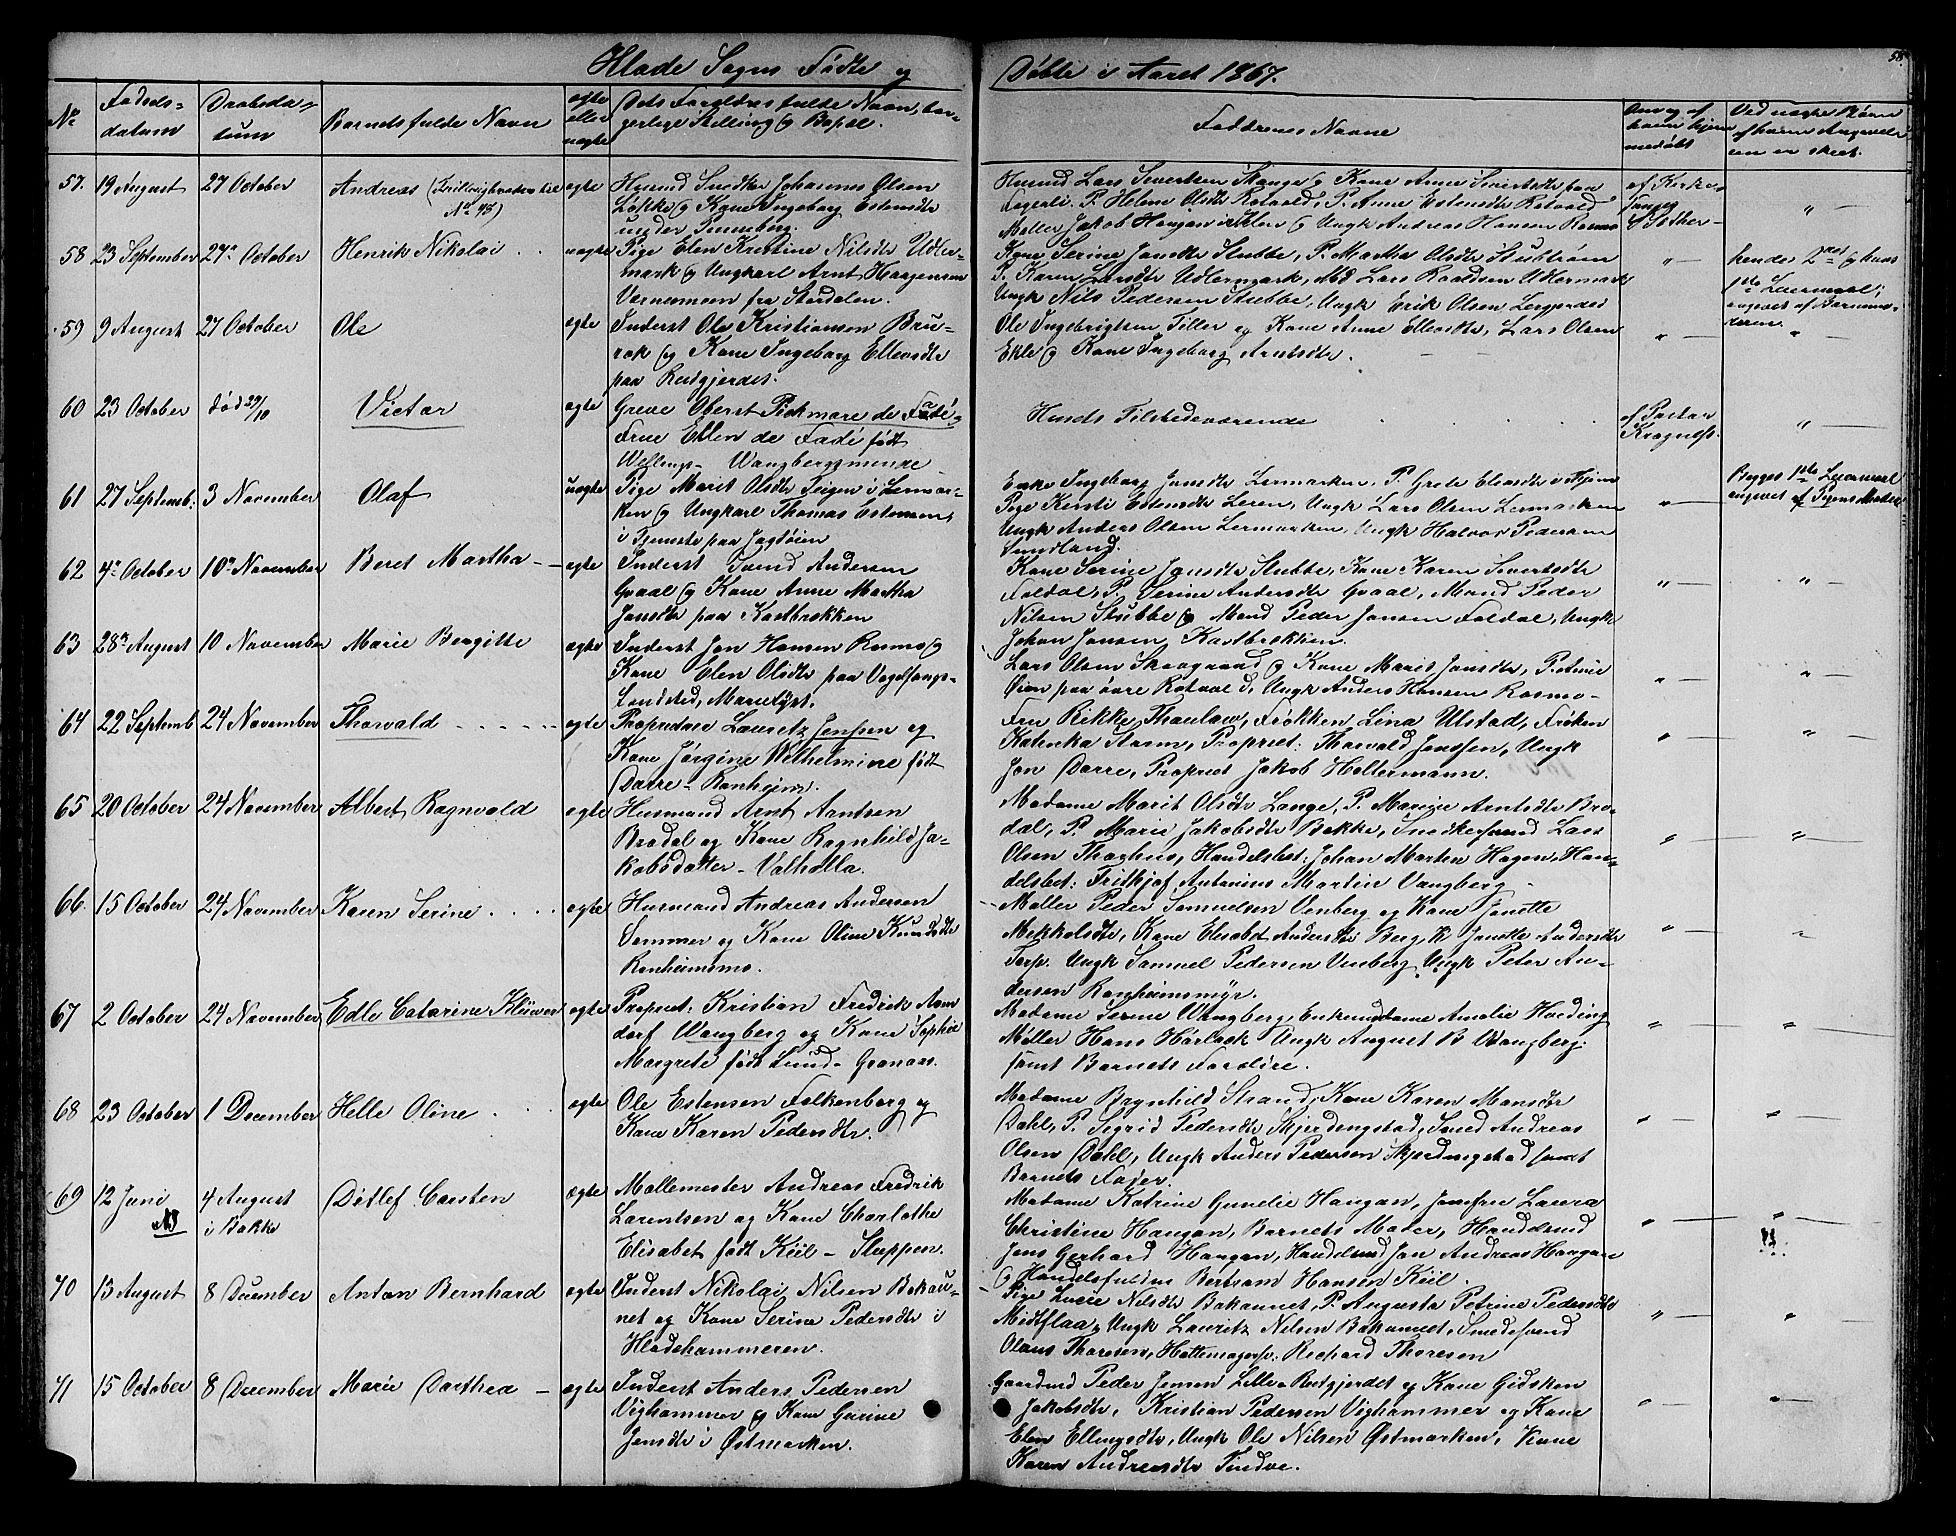 58.
Hlade Sogns Fødte og Døbte i Aaret 1867.
No
Fødsels-
datum
Daabsda-
tum
Barnets fulde Navn
ægte
eller
uægte
Dets Forældres fulde Navn, bor-
gerlige Stilling og Bopæl.
Faddrenes Navne
Om og af
hvem hjem-
medøbt
Ved uægte Børn
af hvem Angivel-
sen er skeet.
57. 19 August 27 October Andreas (Tvillingbroder til
No 45)
ægte
Husmd Snedker Johannes Olsen
Løkke og Kone Ingeborg Estensdtr
under Tunneberg.
Husmd Lars Sivertsen Stange og Kone Anne Sivertsdtr paa
P. Helene Olsdtr Rotvold, P. Anne Estensdtr Rotvold
Møller Jakob Haugan i Ihlen og Ungk Andreas Hansen Rosmo
af Kirke-
sanger
Sother
" —
58 23 September 27 October Henrik Nikolai . . uægte
Pige Elen Kristine Nilsdtr Udler-
mark og Ungkarl Arnt Haagensen
Værnesmoen fra Størdalen.
Kone Serine Jonsdtr Stubbe, P. Martha Olsdtr Stubtrøen
P. Karen Larsdtr Udlermark, Md Lars Roaldsen Udlermark
Ungk Nils Pedersen Stubbe, Ungk Erik Olsen Lergjordet
" —
hendes 2det og hans
1ste Leiermaal;
angivet af Jormo-
deren.
59 9 August 27 October Ole ægte
Inderst Ole Kristiansen Bru-
rok og Kone Ingeborg Ellevsdtr
paa Rødgjerdet.
Ole Ingebrigtsen Tiller og Kone Anne Ellevsdtr, Lars Olsen
Ekle og Kone Ingeborg Arntsdtr.
" —
" —
60 23 October død 29/10 Victor ægte
Greve Oberst Pichmore de Fadé-
Frue Ellen de Fadé født
Wellings- Wangbergsminde
Husets Tilstedeværende
af Pastor
Kragness.
" —
61 27 Septemb: 3 November Olaf uægte
Pige Marit Olsdtr Teigen i Lermar-
ken og Ungkarl Thomas Estensen,
i Tjeneste paa Jagtøien
Enke Ingeborg Jonsdtr Lermarken, P. Grete Elevsdtr
Pige Kersti Estensdtr Leren, Ungk Lars Olsen Lermarken
Ungk Anders Olsen Lermarken, Ungk Halvor Pedersen
Sundland.
" —
Begges 1ste Leiermaal
angivet af Pigens Moder
62 4 October 10 November Beret Martha - - ægte
Inderst Svend Andersen
Graal og Kone Anne Martha
Jonsdtr paa Kastbrekken
Kone Serine Jonsdtr Stubbe, Kone Karen Sivertsdtr
Foldal, P. Serine Andersdtr Graal, Mand Peder
Nilsen Stubbe og Mand Peder Jonsen Foldal, Ungk
Johan Jonsen Kastbrekken.
" —
" —
63 28 August 10 November Marie Bergitte ægte
Inderst Jon Hansen Rosmo og
Kone Elen Olsdtr paa Vogelsangs-
Landsted, Marielyst.
Lars Olsen Skovgaard og Kone Marit Jonsdtr, P.
Øien paa øvre Rotvold, Ungk Anders Hansen Rosmo-
" —
" —
64 22 Septemb 24 November Thorvald - - - - - ægte
Proprietær Lauritz Jenssen og
Kone Jørgine Wilhelmine født
Darre - Ranheim.
Fru Rikke Thaulow, Frøkken Lina Ulstad, Frøken
Katinka Storm, Propriet: Thorvald Jenssen, Ungk
Jon Darre, Propriet Jakob Hollermann.
" —
" —
65 20 October 24 November Albert Ragnvald ægte
Husmand Arnt Arntsen
Brodal og Kone Ragnhild Ja-
kobsdatter - Valhalla.
Madame Marit Olsdtr Lange, P. Marie Arntsdtr Bro-
dal, P. Marie Jakobsdtr Bakke, Snedkersvend Lars
Olsen Thoghus, Handelsbet: Johan Marten Hagen, Han-
delsbet: Frithjof Antonius Martin Vangberg -
" —
" —
66. 15 October 24 November Karen Serine . . . . ægte
Husmand Andreas Andersen
Sommer og Kone Oline Knudsdtr
Ranheimsmo.
Møller Peder Samuelsen Venberg og Kone Jonette
Mekkelsdtr, Kone Elisabet Andersdtr Berg, K Jonette Andersdtr
Torp. Ungk Samuel Pedersen Venberg, Ungk Peter An-
dersen Ranheimsmyr.
" —
" —
67 2 October 24 November Edle Catarine Klüwer ægte
Propriet: Kristian Fredrik Arn
dorf Wangberg og Kone Sophie
Margrete født Lund - Granaas.
Madame Serene Wangberg, Enkemadame Amalie Harding
Møller Hans Hårlack Ungk August B Wangberg.
samt Barnets Forældre.
" —
" —
68 23 October 1 December Helle Oline . . . ægte
Ole Estensen Falkenborg og
Kone Karen Pedersdtr.
Madame Brynhild Strand, Kone Karen Monsdtr
Dahl, P. Sigrid Pedersdtr Skjerdengstad, Smed Andreas
Olsen Dahl, Ungk Anders Pedersen Skjerdingstad samt
Barnets Fader.
" —
" —
69 12 Juni 4 August
i Bakke
NB
Ditlef Carsten ægte
Møllemester Andreas Fredrik
Lorentsen og Kone Charlotte
Elisabet født Kiil - Sluppen.
Madame Katrine Gunelie Haugan, Jomfru Laura
Christine Haugan, Barnets Moder, Handelsmd
Jens Gerhard Haugan, Handelsmd Jon Andreas Haugan
og Handelsfuldm Bertram Hansen Kiil.
" —
" —
70 13 August 8 December Anton Bernhard ægte
Inderst Nikolai Nilsen Bakau-
net og Kone Serine Pedersdtr i
Hladehammeren.
Pige Lucie Nilsdtr Bakaunet, P. Augusta Petrine Pedersdtr
Midtflaa, Ungk Lauritz Nilsen Bakaunet, Smedesvend
Olaus Thoresen, Hattemagersv: Richard Thoresen
" —
" —
71 15 October 8 December Marie Dorthea - ægte
Inderst Anders Pedersen
Vighammer og Kone Gurine
Jensdtr i Østmarken.
Gaardmd Peder Jensen Lille Rødgjerdet og Kone Gidsken
Jakobsdtr, Kristian Pedersen Vighammer og Kone
Elen Ellingsdtr, Ungk Ole Nilsen Østmarken, Kone
Karen Andreasdtr Tindve.
" —
" —